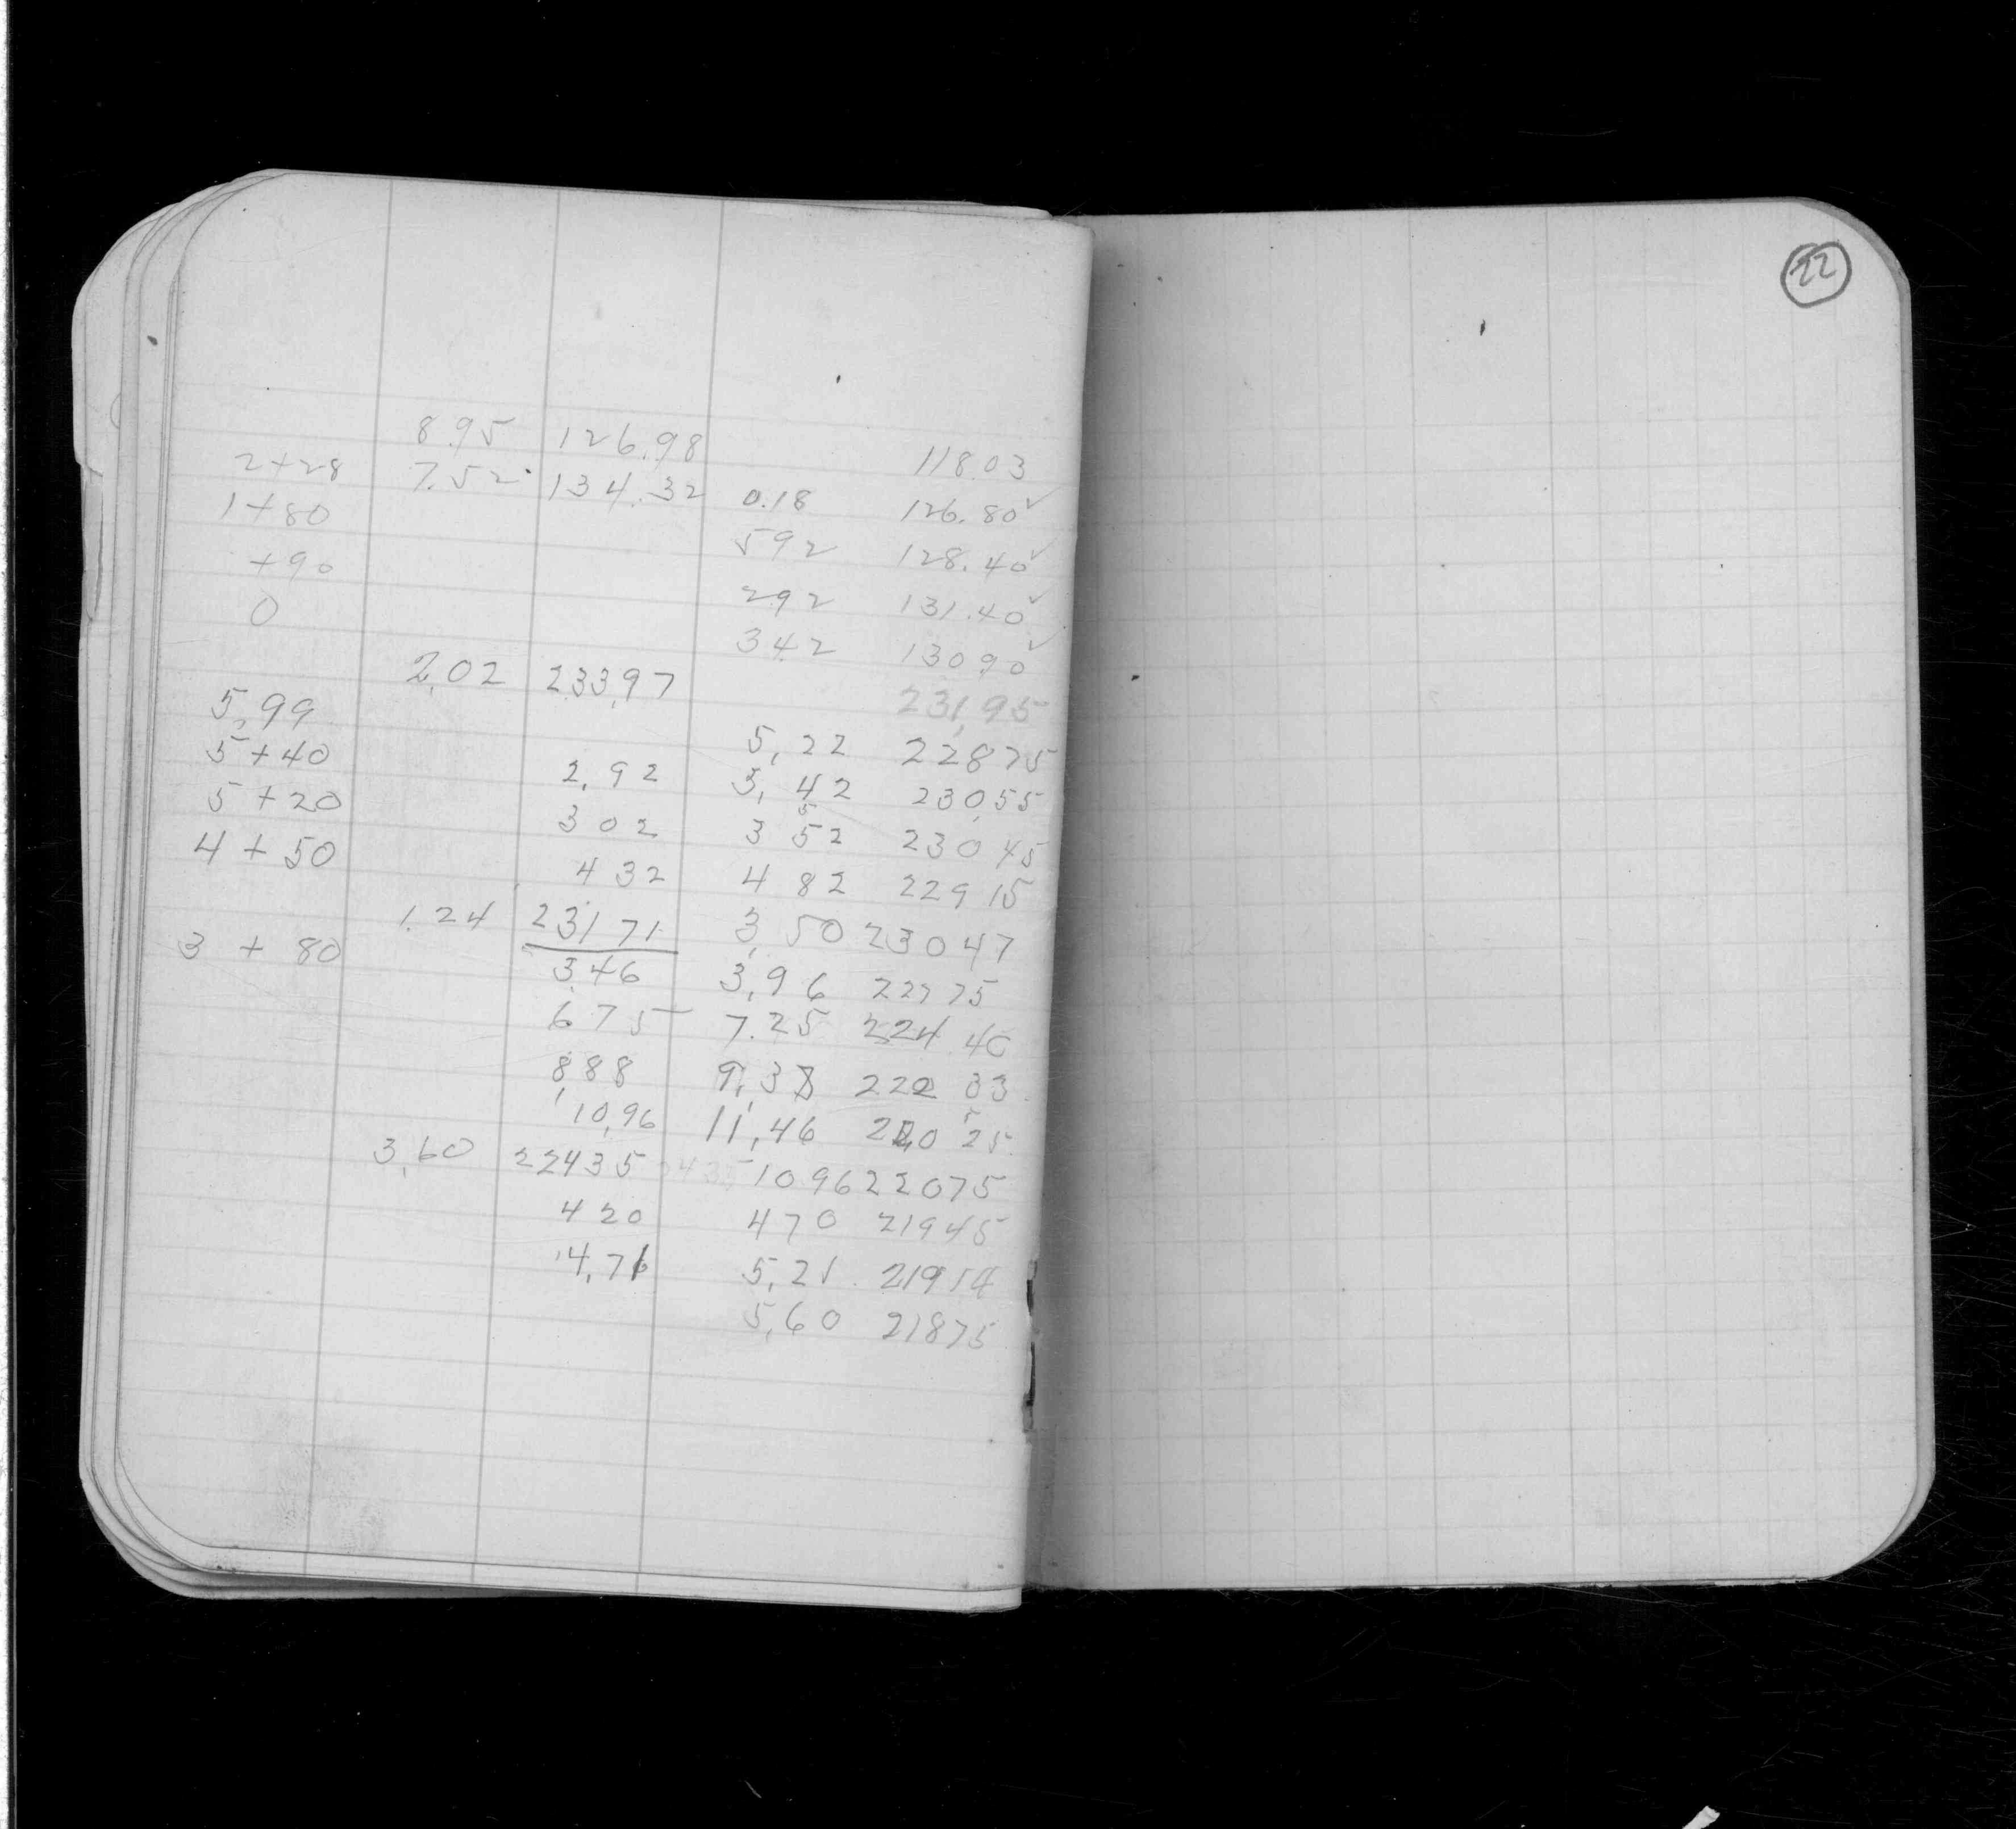 8.95 126.98 118.03
2+28 7.52 134.32 0.18 126.80✓
1+80 592 128.40✓
+90 292 131.40✓
0 342 13090✓
2,02 233,97 231,95
5,99 5,22 22875
5+40 2,92 3,42 230,55
5+20 302 3 52 23045
4+50 432 482 22915
1.24 23171 3,50 23047
3+80 3,46 3,96 22775
675 7.25 224.40
8,88 9,38 222 33
10,96 11,46 220 25
3,60 22435 1096 22075
420 470 21945
4,71 5,21 21914
5,60 21875
22